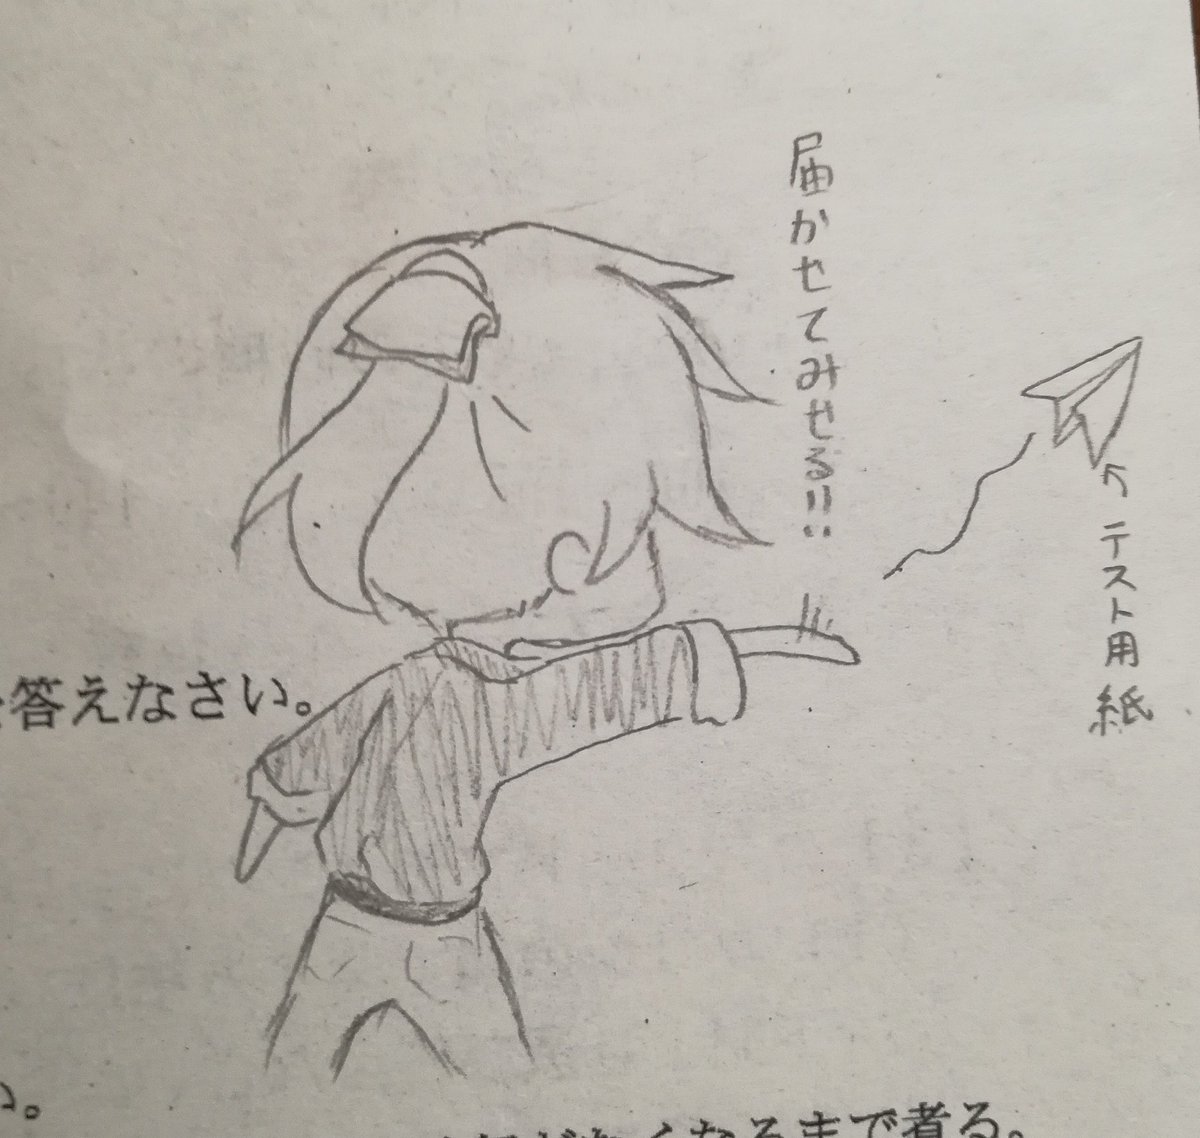 届かせてみせる!!
↖テスト用紙
答えなさい。
い。
なくなるまで煮る。